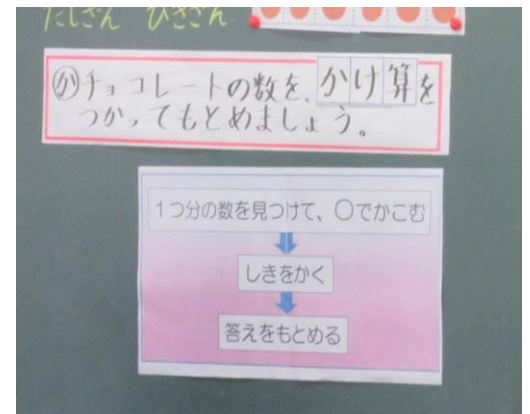 たしざん ひきざん
かチョコレートの数を、かけ算を
つかってもとめましょう。
1つ分の数を見つけて、○でかこむ
しきをかく
答えをもとめる